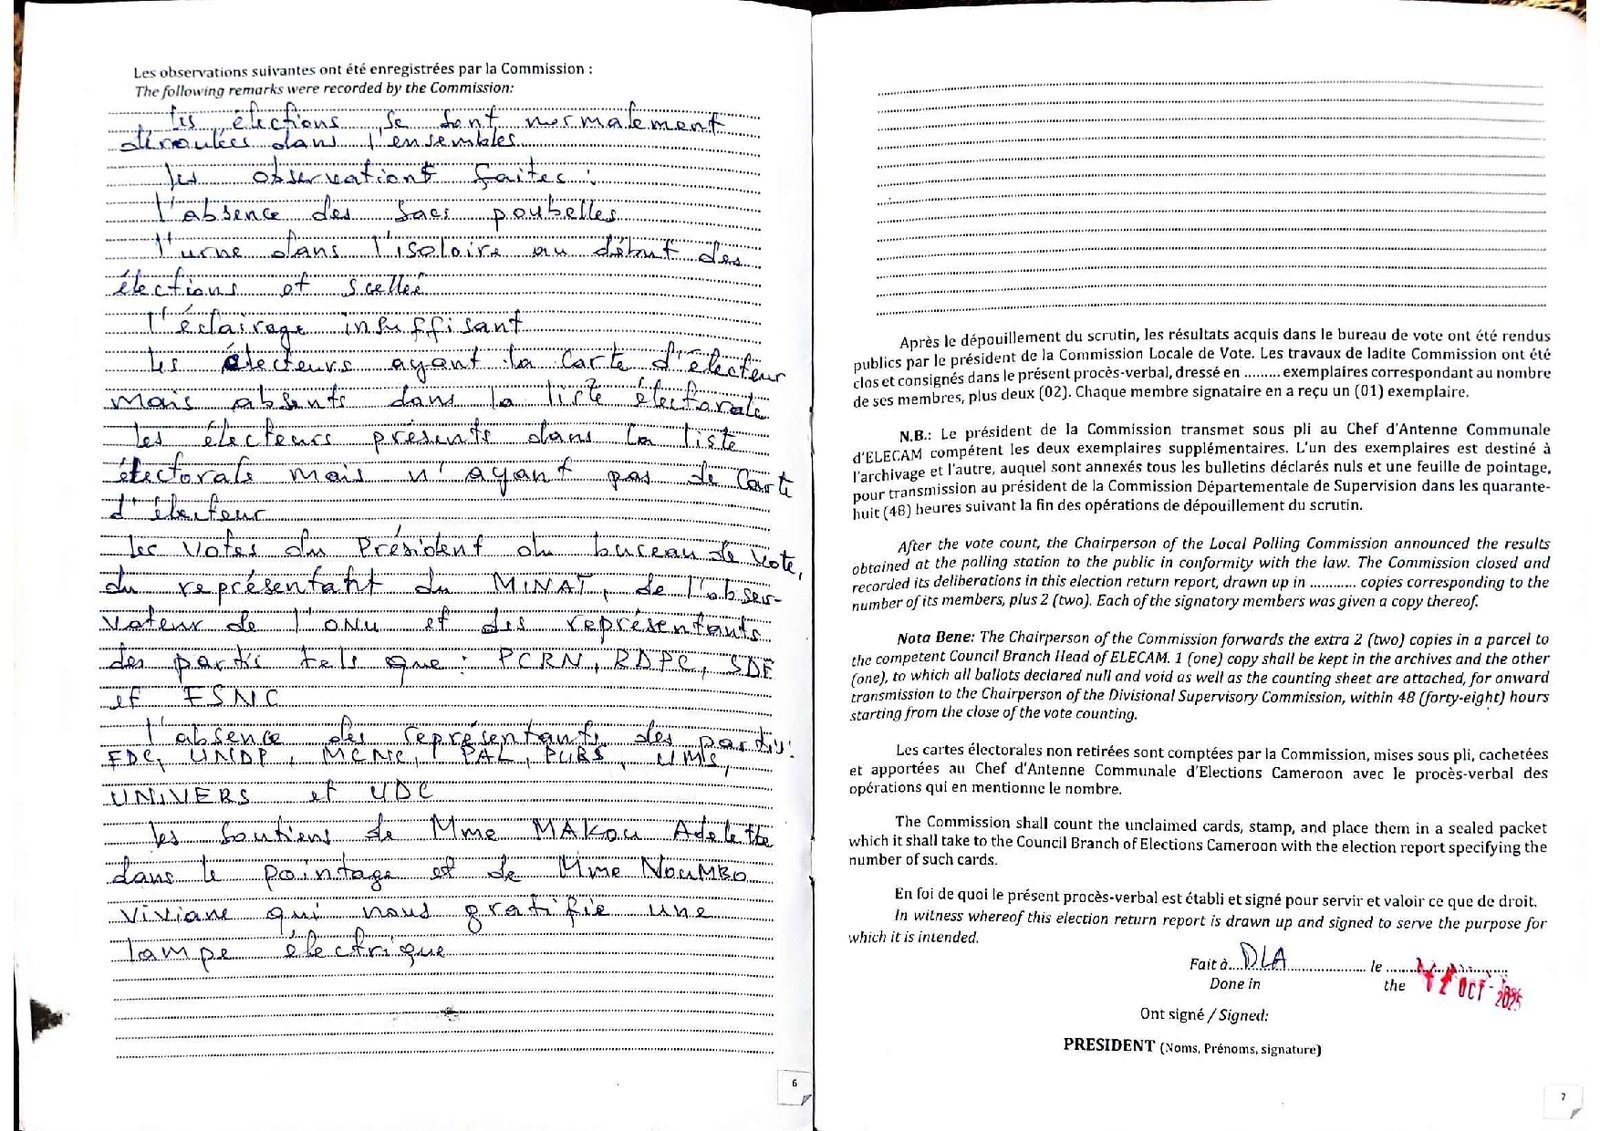 Les observations suivantes ont été enregistrées par la Commission :
The following remarks were recorded by the Commission:
Les élections se sont normalement
déroulées dans l'ensembles
Les observations faites :
L'absence des sacs poubelles
L'urne dans l'isoloire au début des
élections et scellée
L'éclairage insuffisant
Les électeurs ayant la carte d'électeur
mais absents dans la liste électorale
Les électeurs présents dans la liste
électorale mais n'ayant pas de carte
d'électeur
Les votes du Président du bureau de vote,
du représentant du MINAT, de l'obser-
vateur de l'ONU et des représentants
des partis tels que : PCRN, RDPC, SDF
et FSNC
L'absence des représentants des partis:
FDC, UNDP, MCNC, PAL, PURS, UMS,
UNIVERS et UDC
Les soutiens de Mme MAKOU Adelette
dans le pointage et de Mme NOUMBO
Viviane qui nous gratifie une
lampe électrique
6
Après le dépouillement du scrutin, les résultats acquis dans le bureau de vote ont été rendus
publics par le président de la Commission Locale de Vote. Les travaux de ladite Commission ont été
clos et consignés dans le présent procès-verbal, dressé en ......... exemplaires correspondant au nombre
de ses membres, plus deux (02). Chaque membre signataire en a reçu un (01) exemplaire.
N.B.: Le président de la Commission transmet sous pli au Chef d'Antenne Communale
d'ELECAM compétent les deux exemplaires supplémentaires. L'un des exemplaires est destiné à
l'archivage et l'autre, auquel sont annexés tous les bulletins déclarés nuls et une feuille de pointage,
pour transmission au président de la Commission Départementale de Supervision dans les quarante-
huit (48) heures suivant la fin des opérations de dépouillement du scrutin.
After the vote count, the Chairperson of the Local Polling Commission announced the results
obtained at the polling station to the public in conformity with the law. The Commission closed and
recorded its deliberations in this election return report, drawn up in ........... copies corresponding to the
number of its members, plus 2 (two). Each of the signatory members was given a copy thereof.
Nota Bene: The Chairperson of the Commission forwards the extra 2 (two) copies in a parcel to
the competent Council Branch Head of ELECAM. 1 (one) copy shall be kept in the archives and the other
(one), to which all ballots declared null and void as well as the counting sheet are attached, for onward
transmission to the Chairperson of the Divisional Supervisory Commission, within 48 (forty-eight) hours
starting from the close of the vote counting.
Les cartes électorales non retirées sont comptées par la Commission, mises sous pli, cachetées
et apportées au Chef d'Antenne Communale d'Elections Cameroon avec le procès-verbal des
opérations qui en mentionne le nombre.
The Commission shall count the unclaimed cards, stamp, and place them in a sealed packet
which it shall take to the Council Branch of Elections Cameroon with the election report specifying the
number of such cards.
En foi de quoi le présent procès-verbal est établi et signé pour servir et valoir ce que de droit.
In witness whereof this election return report is drawn up and signed to serve the purpose for
which it is intended.
Fait à....DLA................... le ........................
Done in the 12 OCT 2025
Ont signé / Signed:
PRESIDENT (Noms, Prénoms, signature)
7